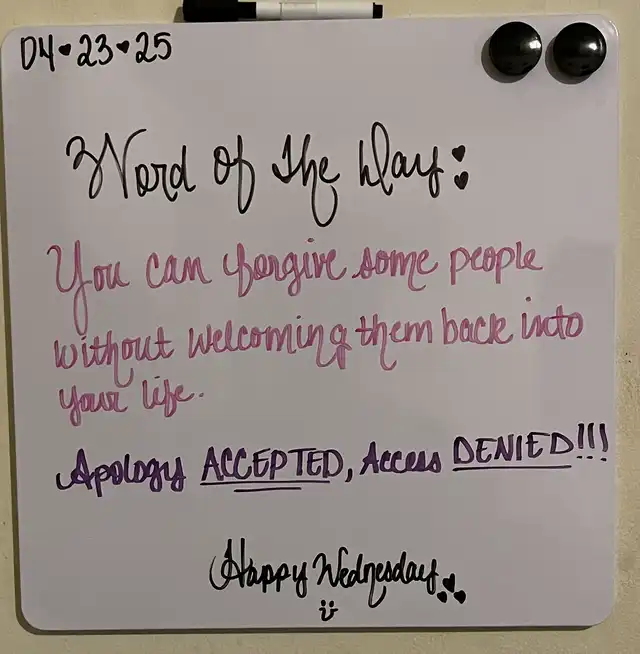 04♥23♥25
Word of the Day:
You can forgive some people
without welcoming them back into
your life.
Apology ACCEPTED, Access DENIED!!!
Happy Wednesday